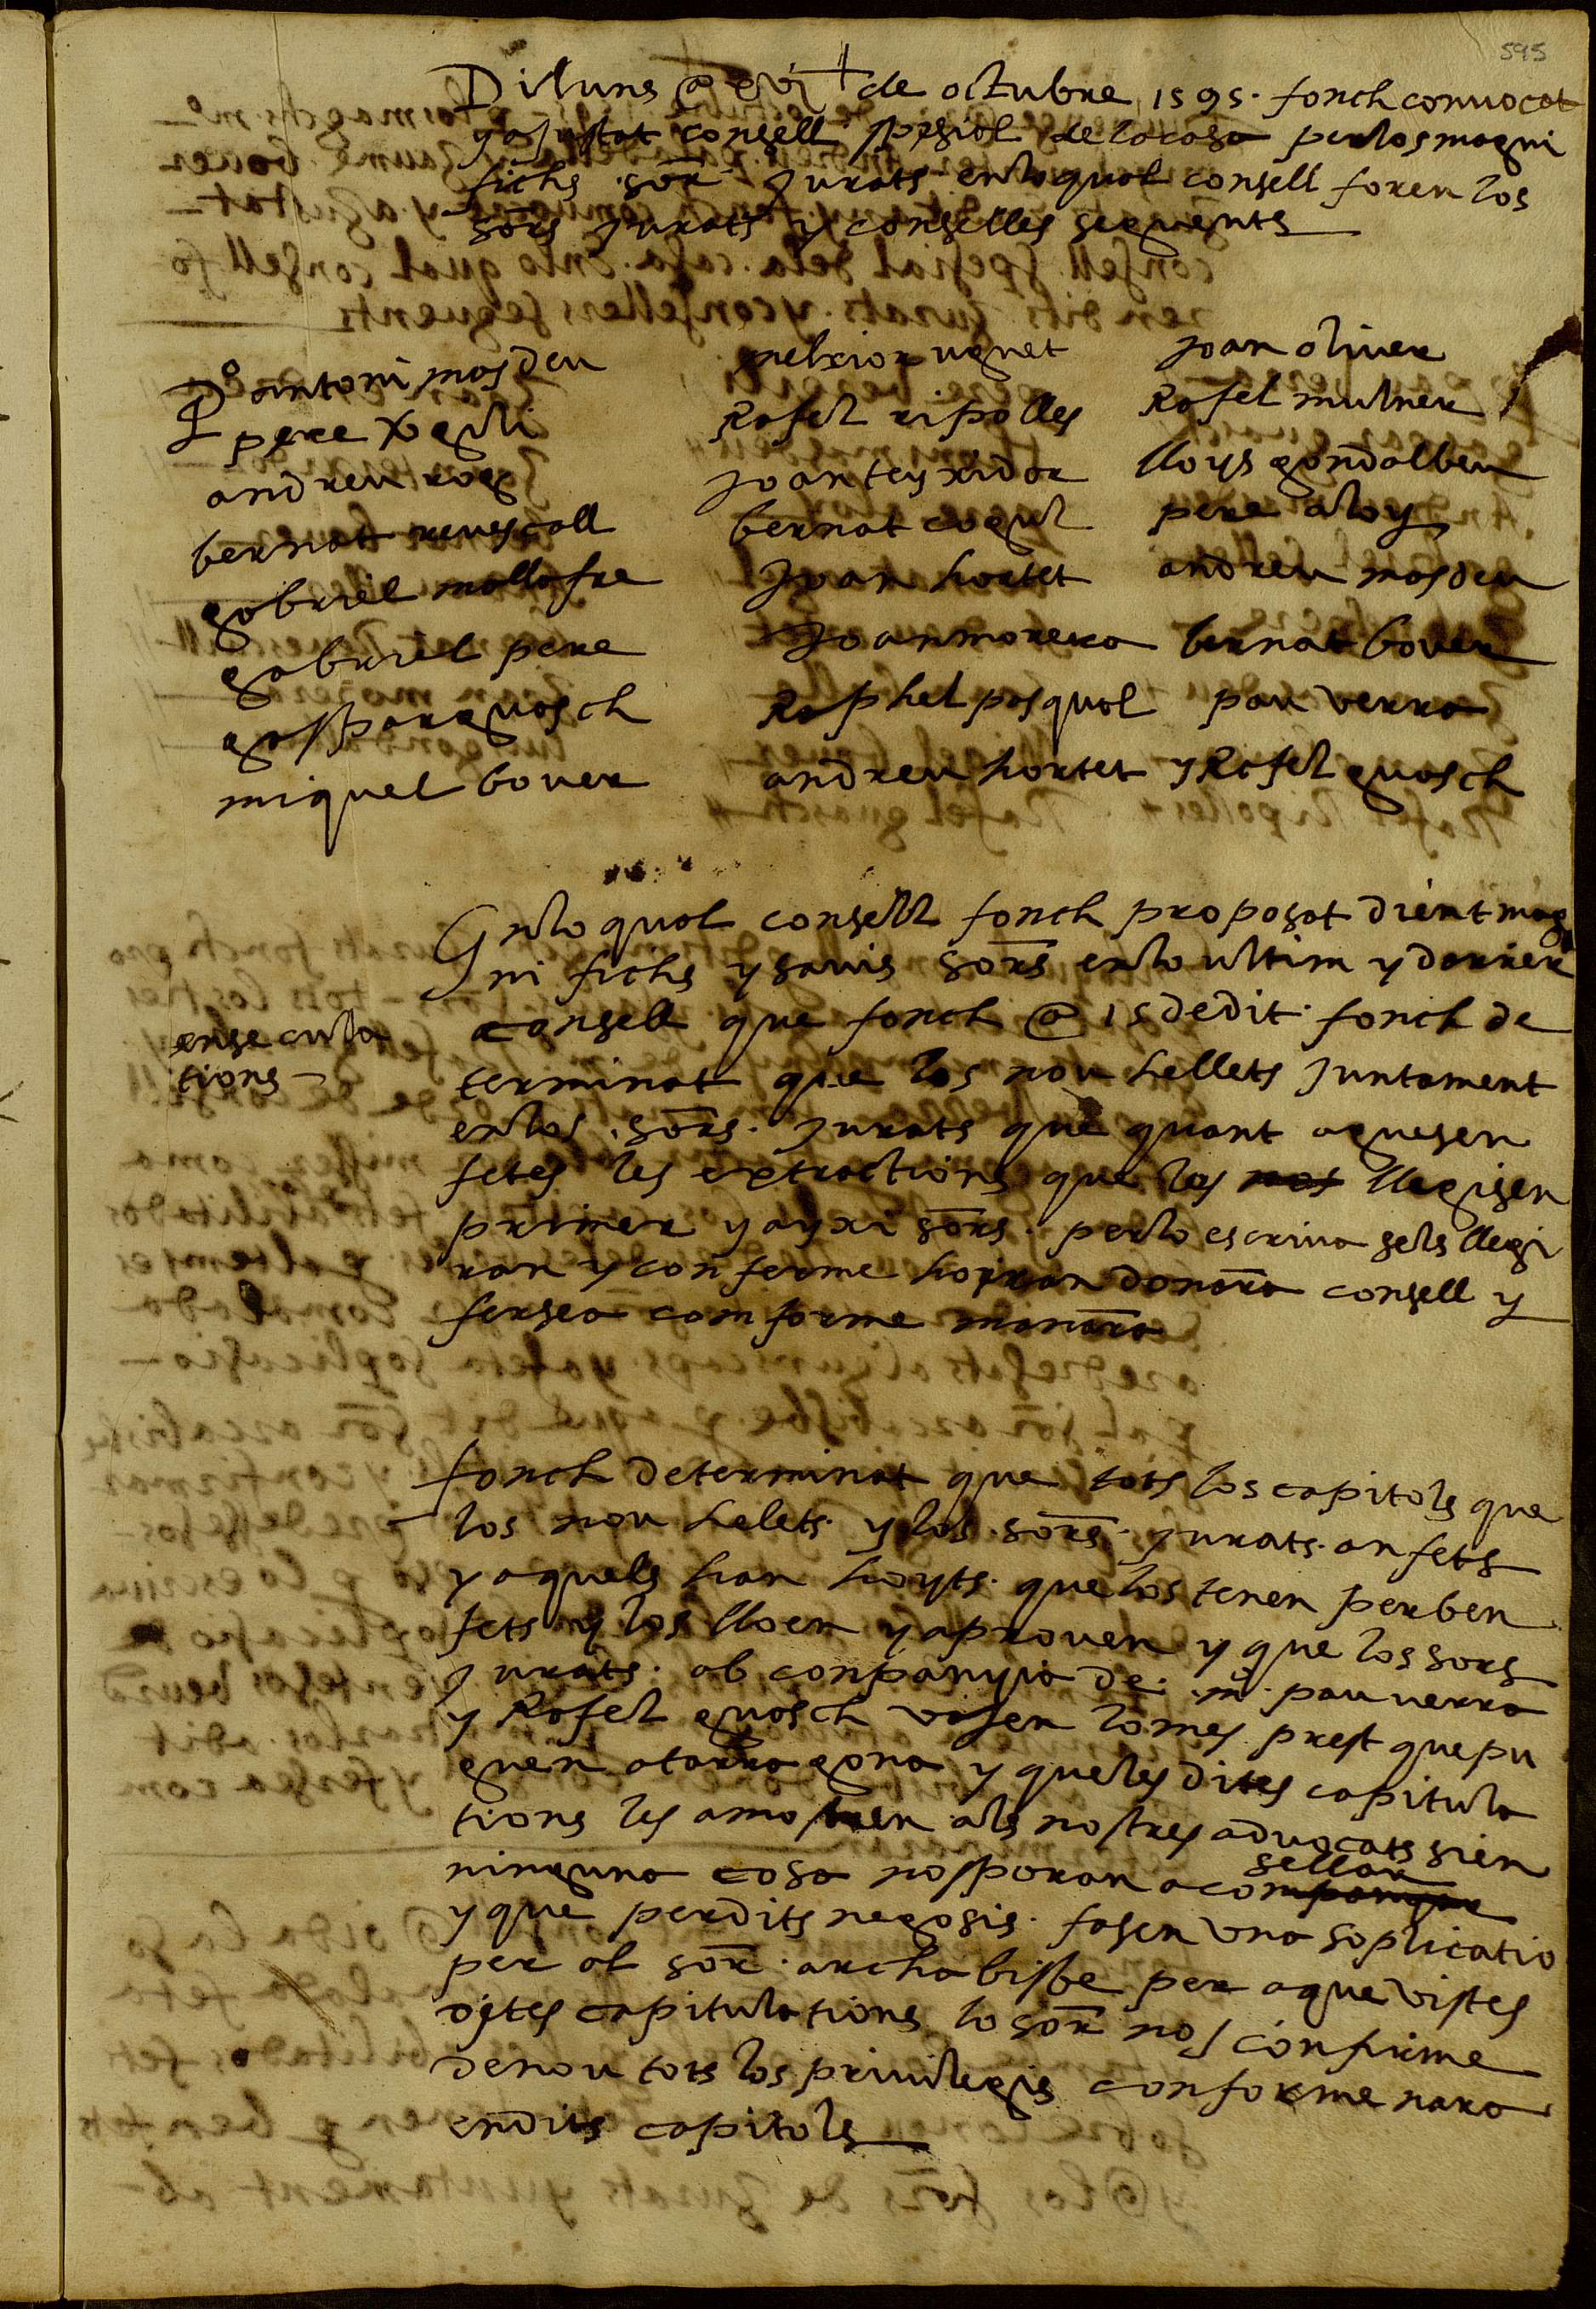 595
Diluns @ xvi de octubre 1595. fonch convocat
y ajustat consell spesial de la casa per los magni
fichs sōr Jurats en lo qual consell foren los
sōrs Jurats y conselles seguents
Po antoni masdeu
pere
andreu roig
bernat revescall
gabriel mallafre
gabriel pere
gaspar guasch
miquel bover
melxior ugnet
Rafel ripolles
Joan teyxidor
bernat cogul
Joan hortet
Joan morera
Raphel pasqual
andreu hortet
Joan oliver
Rafel mulner
lloys gondalbeu
pere aloy
andreu masdeu
bernat bover
pau verra
y Rafel guasch
En lo qual consell fonch proposat dient mag
ni fichs y savis sōrs en lo ultim y darrer
consell que fonch @ 15 de dit fonch de
terminat que los nou hellets Juntament
en los sōrs. Jurats que quant aguesen
fetes les extractions que les llegisen
primer y ayxi sōrs. per lo escriva sels llegi
ran y conferme hoyran donarā consell y
fersea comforme manarā
ense cula
tions
fonch determinat que tots los capitols que
los nou helets y los sōrs. Jurats. an fets
y aquels han hoyts. que los tenen per ben
fets y los lloen y aproven y que los sors
Jurats. ab conpanyia de. m̄. pau verra
y Rafel guasch vagen lo mes prest que pu
guen a tarragona y que les dites capitula
tions les amostren als nostres advocats si en
ninguna cosa nos poran acon sellar
y que per dits negosis. fasen una soplicatio
per al sōr. archabisbe per a que vistes
dites capitulations lo sōr nos confirme
de nou tots los privilegis conforme nara
en dits capitols